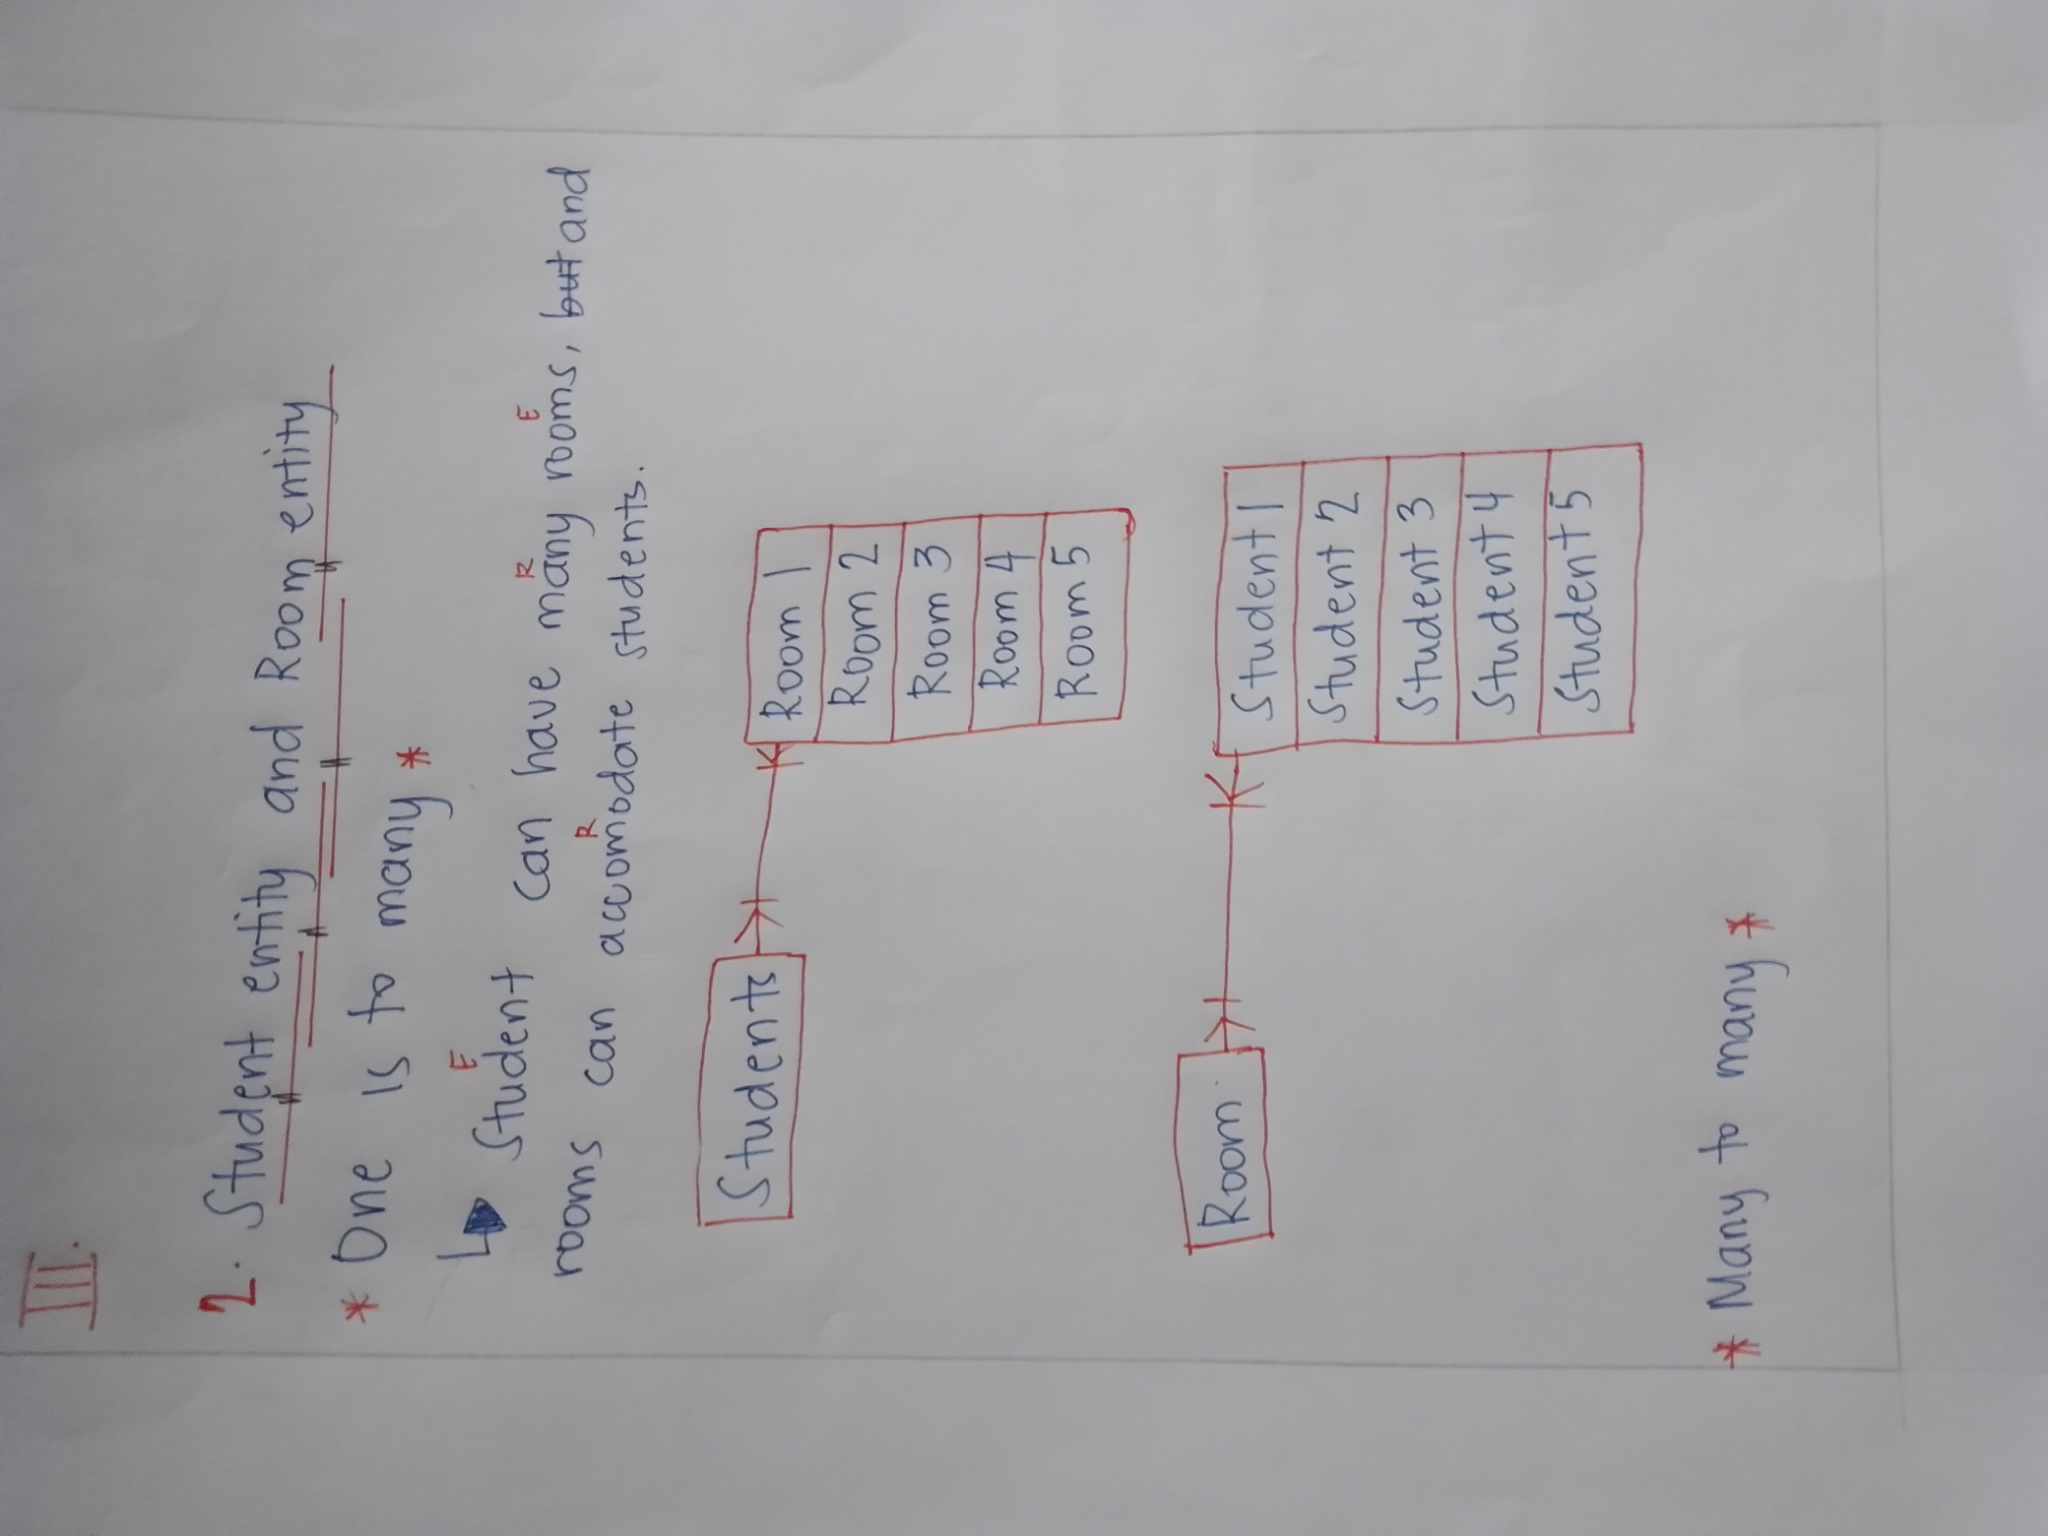 III.
2. Student entity and Room entity
* One is to many *
E R E
↳ Student can have many rooms, but and
R
rooms can accomodate students.
Students
Room 1
Room 2
Room 3
Room 4
Room 5
Room
Student 1
Student 2
Student 3
Student 4
Student 5
* Many to many *